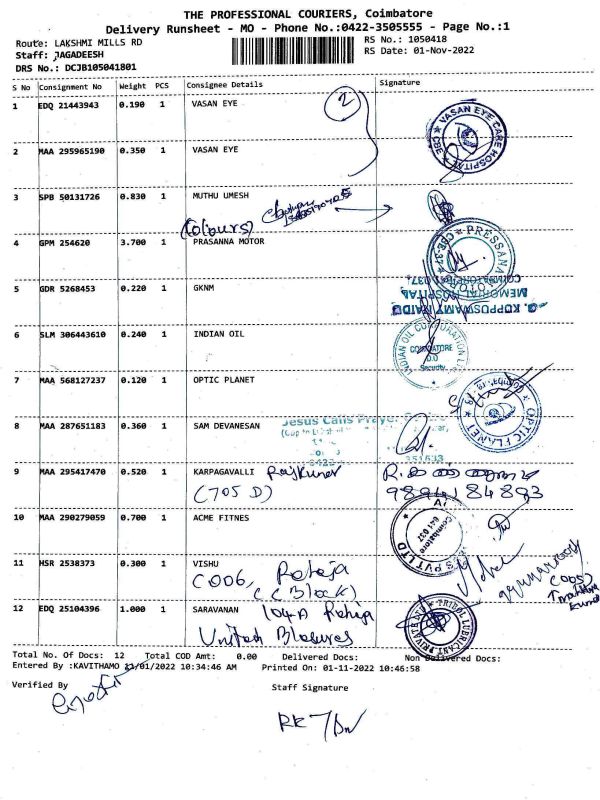 THE PROFESSIONAL COURIERS, Coimbatore
Delivery Runsheet - MO - Phone No.:0422-3505555 - Page No.:1
Route: LAKSHMI MILLS RD
RS No.: 1050418
Staff: JAGADEESH
RS Date: 01-Nov-2022
DRS No.: DCJB105041801
S No Consignment No Weight PCS Consignee Details Signature
1 EDQ 21443943 0.190 1 VASAN EYE
2
VASAN EYE CARE HOSPITAL
2 MAA 295965190 0.350 1 VASAN EYE
3 SPB 50131726 0.830 1 MUTHU UMESH
(Colours)
4 GPM 254620 3.700 1 PRASANNA MOTOR
PRESSANA
5 GDR 5268453 0.220 1 GKNM
G. KUPPUSWAMY NAIDU
MEMORIAL HOSPITAL
6 SLM 306443610 0.240 1 INDIAN OIL
INDIAN OIL CORPORATION LTD
COIMBATORE
D.O
Security
7 MAA 568127237 0.120 1 OPTIC PLANET
OPTIC PLANET
8 MAA 287651183 0.360 1 SAM DEVANESAN
Jesus Calls Prayer
9 MAA 295417470 0.520 1 KARPAGAVALLI Rajkumar
(705 D)
10 MAA 290279059 0.700 1 ACME FITNES
Coimbatore
641 037
PVT LTD
11 HSR 2538373 0.300 1 VISHU
C006, Raheja
(C Block)
12 EDQ 25104396 1.000 1 SARAVANAN 104A Raheja
TRIBAL LUBRICANT PRIVATE LTD
Total No. Of Docs: 12 Total COD Amt: 0.00 Delivered Docs: Non Delivered Docs:
Entered By :KAVITHAMO 11/01/2022 10:34:46 AM Printed On: 01-11-2022 10:46:58
Verified By
Staff Signature